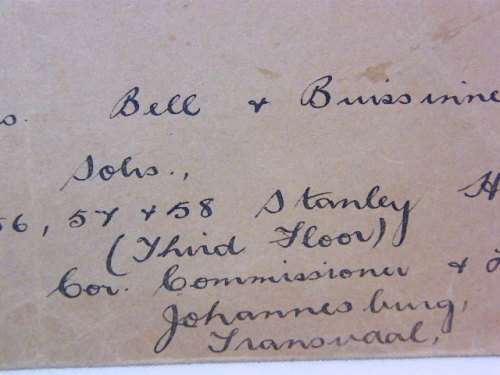 s. Bell & Buissinne
Sols.,
56, 57 & 58 Stanley H
(Third Floor)
Cor. Commissioner &
Johannesburg,
Transvaal,